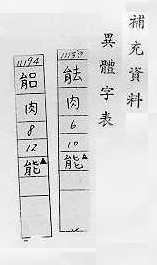 補充資料
異體字表
肉
6
10
能▲
11194
肉
8
12
能▲